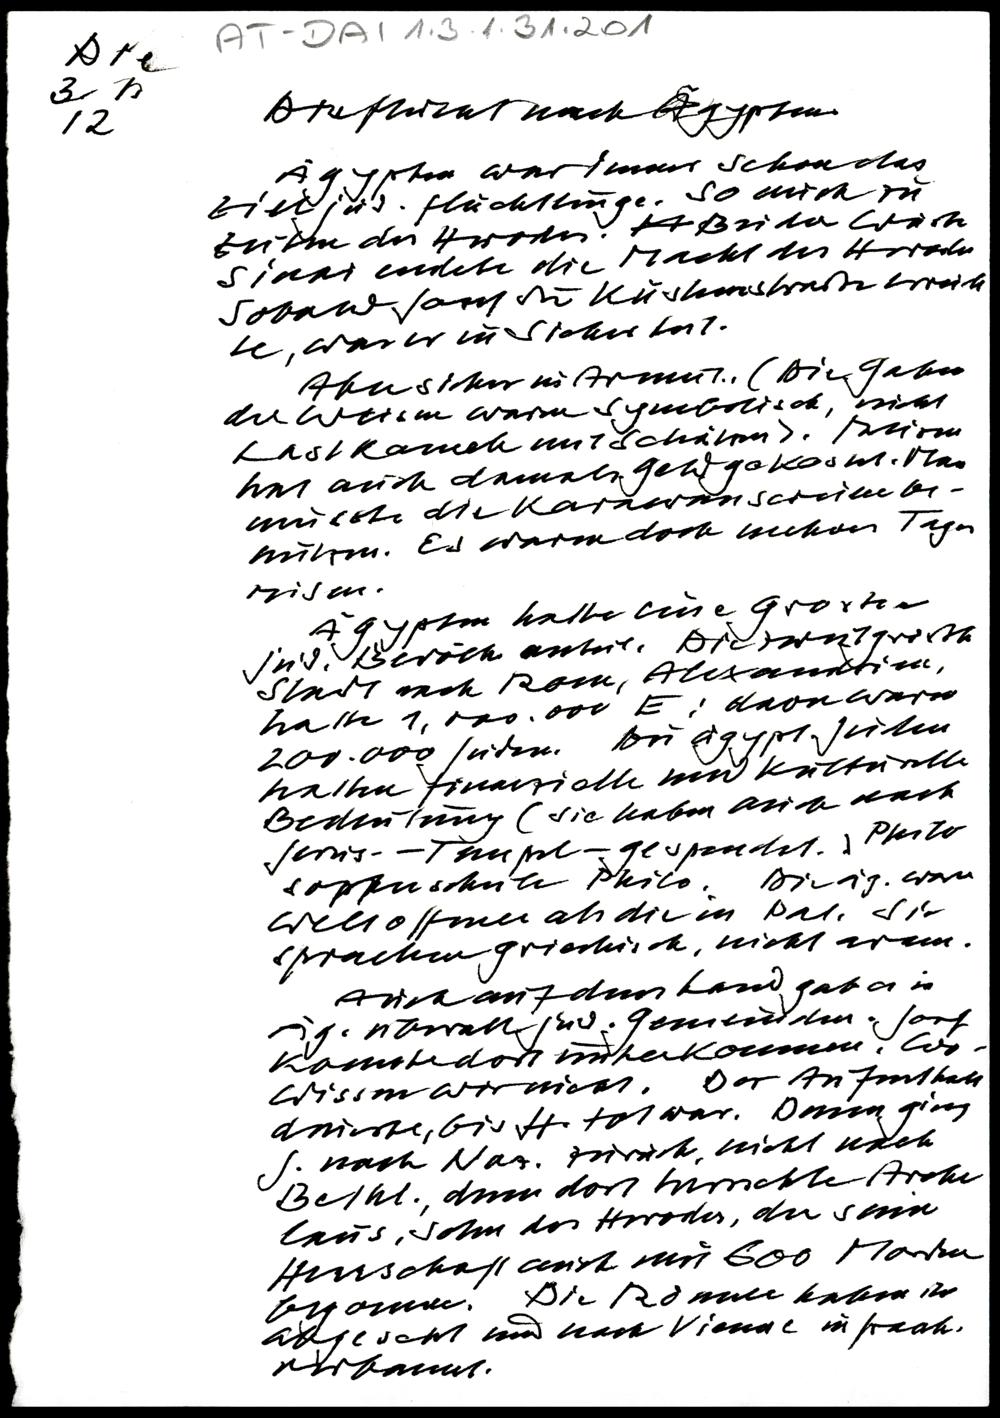 AT-DAI 1.3.1.31.201
Die
3 B
12
Die flucht nach Ägypten
Ägypten war immer schon das
Ziel jüd. Flüchtlinge. So auch zu
Zeiten des Herodes. Bei der Wüste
Sinai endete die Macht des Herodes
Sobald Josef die Küstenstraße erreich
te, war er in Sicherheit.
Aber sicher in Armut. (Die Gaben
der Weisen waren symbolisch, nicht
Lastkamele mit Schätzen). Reisen
hat auch damals Geld gekostet. Man
musste die Karawansereien be-
nützen. Es waren doch mehrere Tage
reisen.
Ägypten hatte eine grosse
jüd. Bevölk. anteil. Die zweitgrösste
Stadt nach Rom, Alexandrien,
hatte 1,000.000 E; davon waren
200.000 Juden. Die ägypt. Juden
hatten finanzielle und kulturelle
Bedeutung (sie haben auch nach
Jerus. - Tempel - gespendet.) Philo
sophenschule Philo. Die äg. waren
weltoffener als die in Pal. Sie
sprachen griechisch, nicht aram.
Auch auf dem Land gab es in
äg. überall jüd. Gemeinden. Josef
konnte dort unterkommen. Wo-
wissen wir nicht. Der Aufenthalt
dauerte, bis H. tot war. Dann ging
J. nach Naz. zurück, nicht nach
Bethl., denn dort herrschte Arche
laus, Sohn des Herodes, der seine
Herrschaft auch mit 600 Morden
begonnen. Die Römer haben ihn
abgesetzt und nach Vienne in frank.
verbannt.